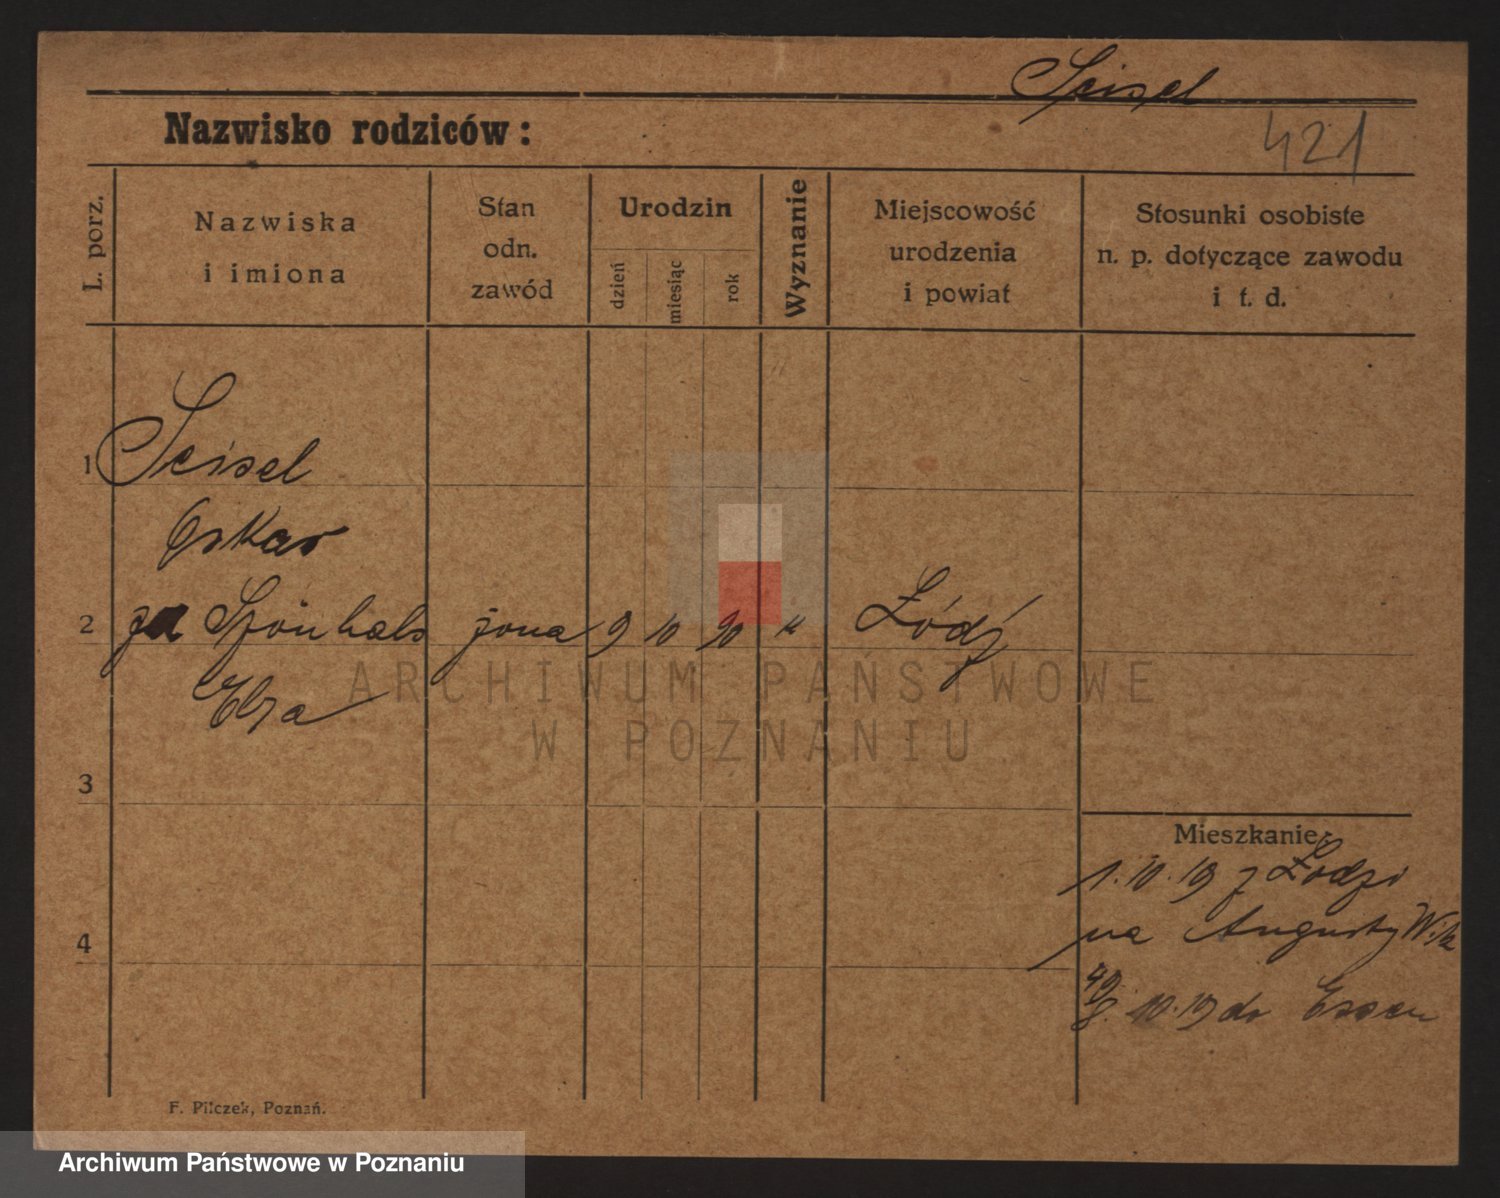 Seisel
Nazwisko rodziców:
421
L. porz.
Nazwiska
i imiona
Stan
odn.
zawód
Urodzin
dzień
miesiąc
rok
Wyznanie
Miejscowość
urodzenia
i powiat
Stosunki osobiste
n. p. dotyczące zawodu
i t. d.
1 Seisel
Oskar
2 żona 9 10 90 Łódź
Elza
3
4
Mieszkanie
1.10.19 z Łodzi
na Augusty Wik
49
8. 10.19 do Essen
F. Pilczek, Poznań.
ARCHIWUM PAŃSTWOWE
W POZNANIU
Archiwum Państwowe w Poznaniu